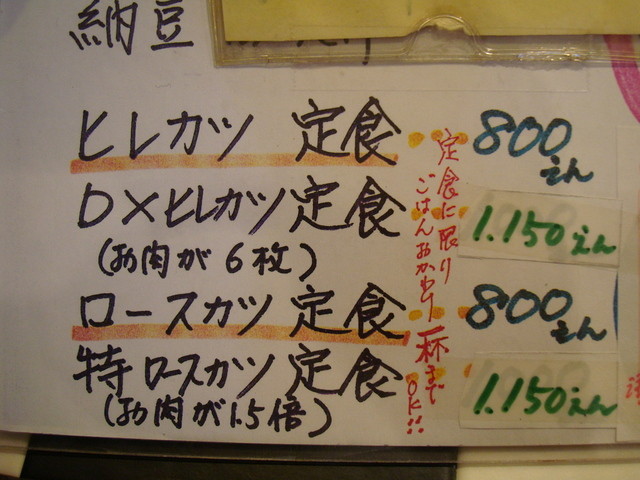 納豆
ヒレカツ 定食 ‥ 800えん
DXヒレカツ定食 ‥ 1.150えん
(お肉が6枚)
ロースカツ定食 ‥ 800えん
特ロースカツ定食 ‥ 1.150えん
(お肉が1.5倍)
定食に限り
ごはんおかわり
一杯まで
OK!!